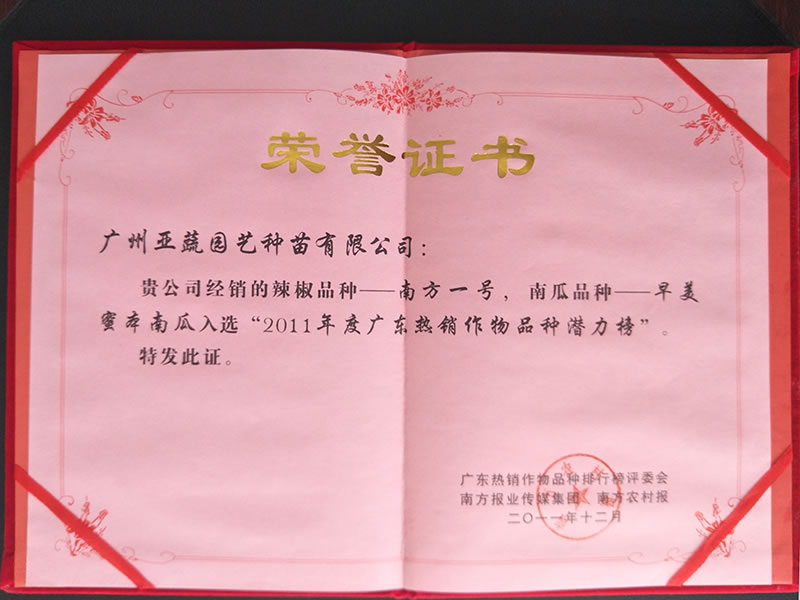 荣誉证书
广州亚蔬园艺种苗有限公司：
贵公司经销的辣椒品种——南方一号，南瓜品种——早美
蜜本南瓜入选“2011年度广东热销作物品种潜力榜”。
特发此证。
广东热销作物品种排行榜评委会
南方报业传媒集团 南方农村报
二〇一一年十二月